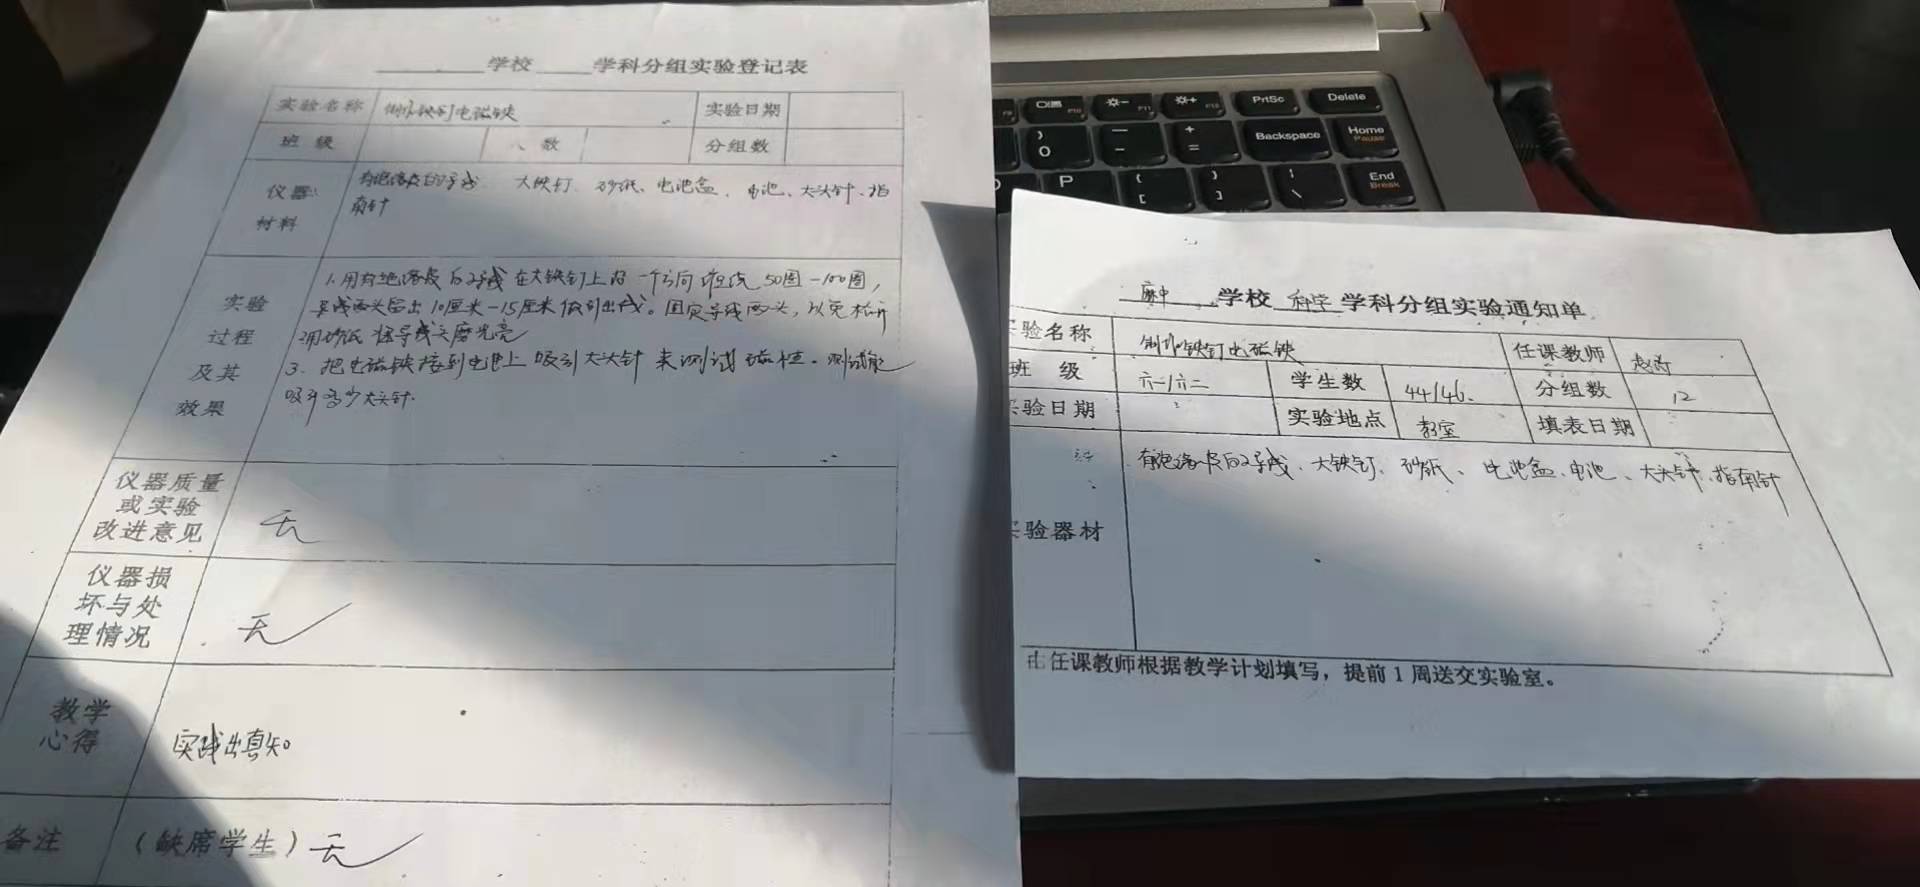 学校 学科分组实验登记表
实验名称 制作铁钉电磁铁 实验日期
班级 人数 分组数
仪器 有绝缘皮的导线、大铁钉、砂纸、电池盒、电池、大头针、指
南针
材料
实验 1.用有绝缘皮的导线在大铁钉上沿一个方向 绕50圈-100圈,
导线两头留出10厘米-15厘米做引出线。固定导线两头,以免松开
过程 2用砂纸 导线头磨光亮
及其 3.把电磁铁接到电池上吸引大头针来测试磁性。测试能
效果 吸引多少大头针.
仪器质量
或实验
改进意见 无
仪器损
坏与处
理情况 无
教学
心得 实践出真知
备注 (缺席学生)无
麻中 学校 科学 学科分组实验通知单
验名称 制作铁钉电磁铁 任课教师
班级 六一/六二 学生数 44/46 分组数 12
验日期 实验地点 教室 填表日期
验器材 有绝缘皮的导线、大铁钉、砂纸、电池盒、电池、大头针、指南针
由任课教师根据教学计划填写,提前1周送交实验室。
PrtSc
Delete
Backspace
Home
Pause
End
Break
O
P